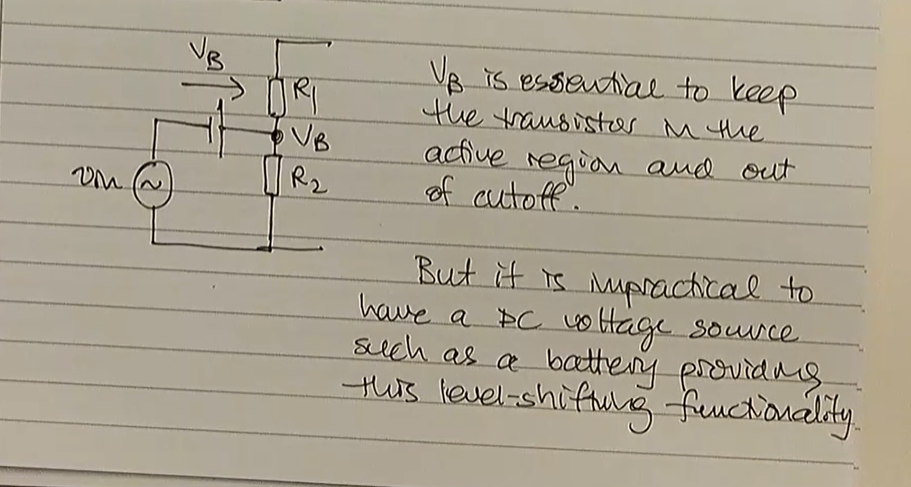 VB
R1
VB
R2
vin
VB is essential to keep
the transistor in the
active region and out
of cutoff.
But it is impractical to
have a DC voltage source
such as a battery providing
this level-shifting functionality.